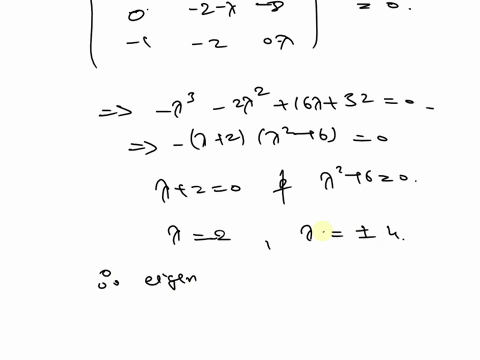 0 -2-λ -8 = 0.
-1 -2 0λ
=> -λ³ - 2λ² + 16λ + 32 = 0 -
=> -(λ+2) (λ²-16) = 0
λ+2=0 λ²-16=0.
λ = -2 , λ = ± 4.
∴ eigen